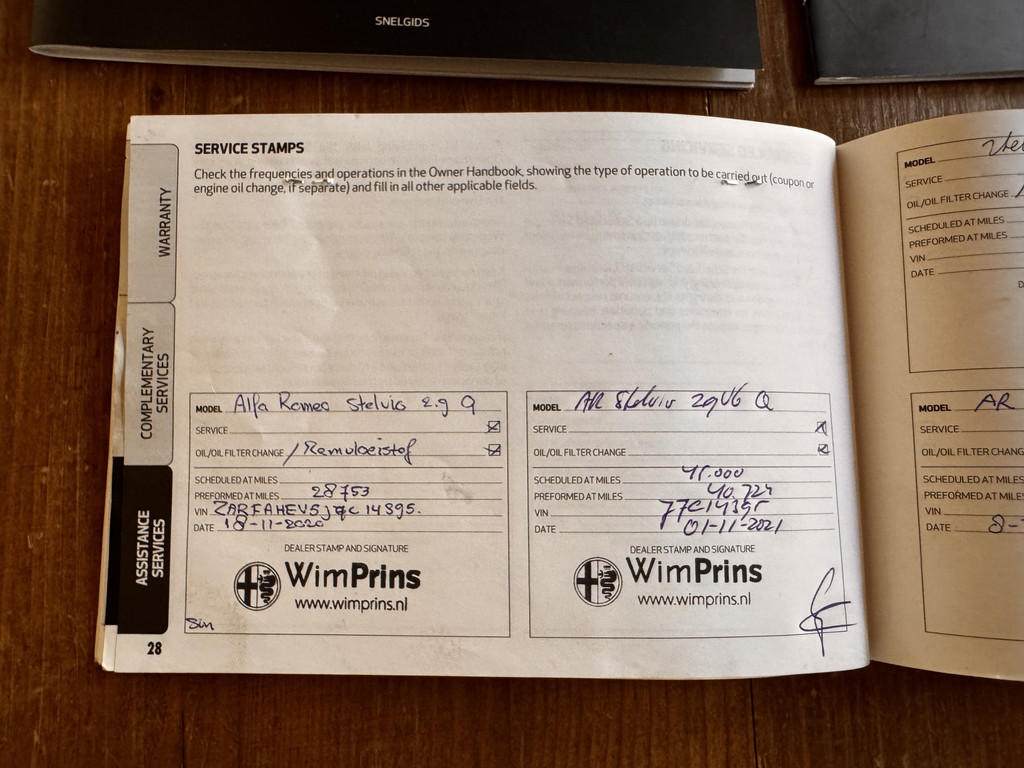 SNELGIDS
SERVICE STAMPS
Check the frequencies and operations in the Owner Handbook, showing the type of operation to be carried out (coupon or
engine oil change, if separate) and fill in all other applicable fields.
WARRANTY
COMPLEMENTARY
SERVICES
ASSISTANCE
SERVICES
MODEL Alfa Romeo Stelvio 2.9 Q
SERVICE
OIL/OIL FILTER CHANGE / Remvloeistof
SCHEDULED AT MILES
PREFORMED AT MILES 28753
VIN
DATE 18-11-2020
DEALER STAMP AND SIGNATURE
WimPrins
www.wimprins.nl
MODEL AR Stelvio 2.9 V6 Q
SERVICE
OIL/OIL FILTER CHANGE
SCHEDULED AT MILES 45.000
PREFORMED AT MILES 40.724
VIN 77C14395
DATE 01-11-2021
DEALER STAMP AND SIGNATURE
WimPrins
www.wimprins.nl
28
MODEL
SERVICE
OIL/OIL FILTER CHANGE
SCHEDULED AT MILES
PREFORMED AT MILES
VIN
DATE
D
MODEL AR
SERVICE
OIL/OIL FILTER CHA
SCHEDULED AT MILES
PREFORMED AT MILES
VIN
DATE 8-